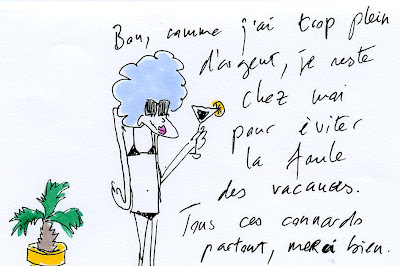 Bon, comme j'ai trop plein
d'argent, je reste
chez moi
pour éviter
la foule
des vacances.
Tous ces connards
partout, merci bien.